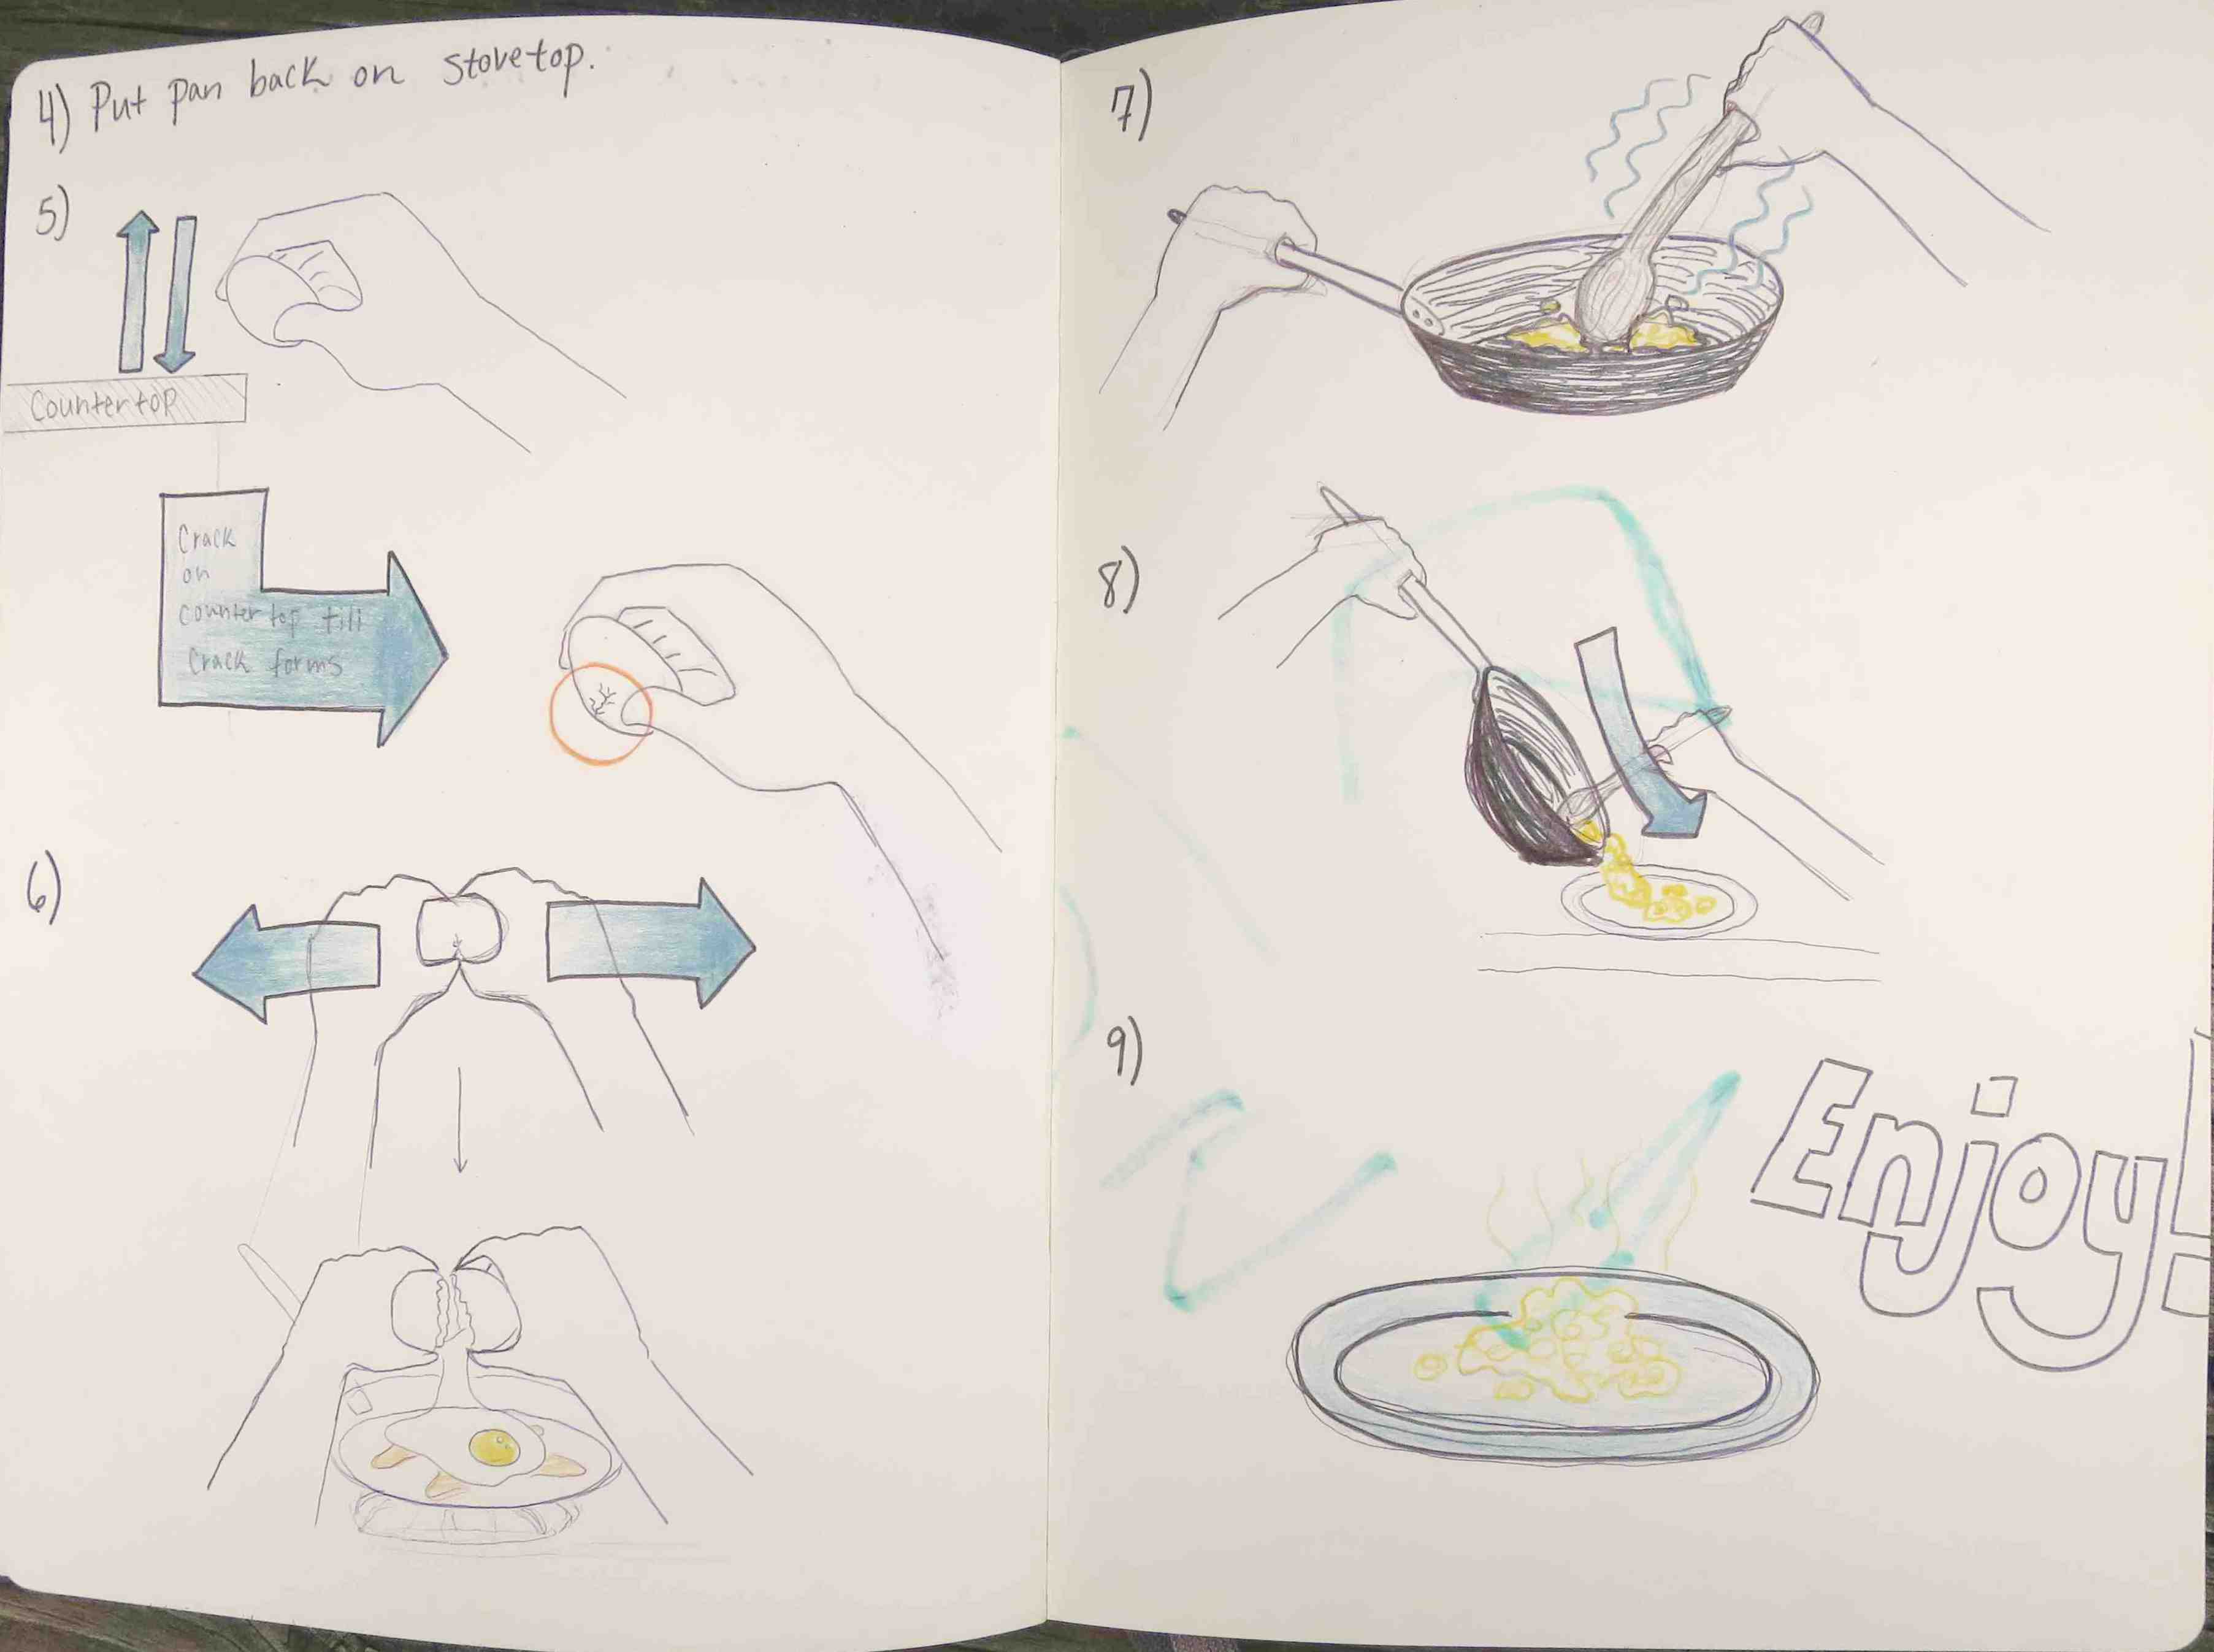 4) Put pan back on stovetop.
5)
Countertop
Crack
on
countertop till
Crack forms
6)
7)
8)
9)
Enjoy!